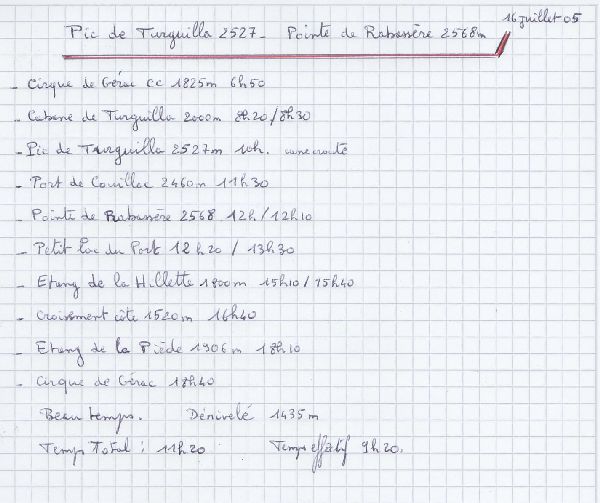 16 juillet 05
Pic de Turguilla 2527 - Pointe de Rabassère 2568m
- Cirque de Gérac CC 1825m 6h50
- Cabane de Turguilla 2000m 8h20/8h30
- Pic de Turguilla 2527m 10h.
- Port de Couillac 2460m 11h30
- Pointe de Rabassère 2568 12h/12h10
- Petit Lac du Port 12h20 / 13h30
- Etang de la Hillette 1800m 15h10/15h40
- Croisement côte 1520m 16h40
- Etang de la Piède 1906m 18h10
- Cirque de Gérac 18h40
Beau temps. Dénivelé 1435m
Temps Total : 11h20 Temps effectif 9h20.